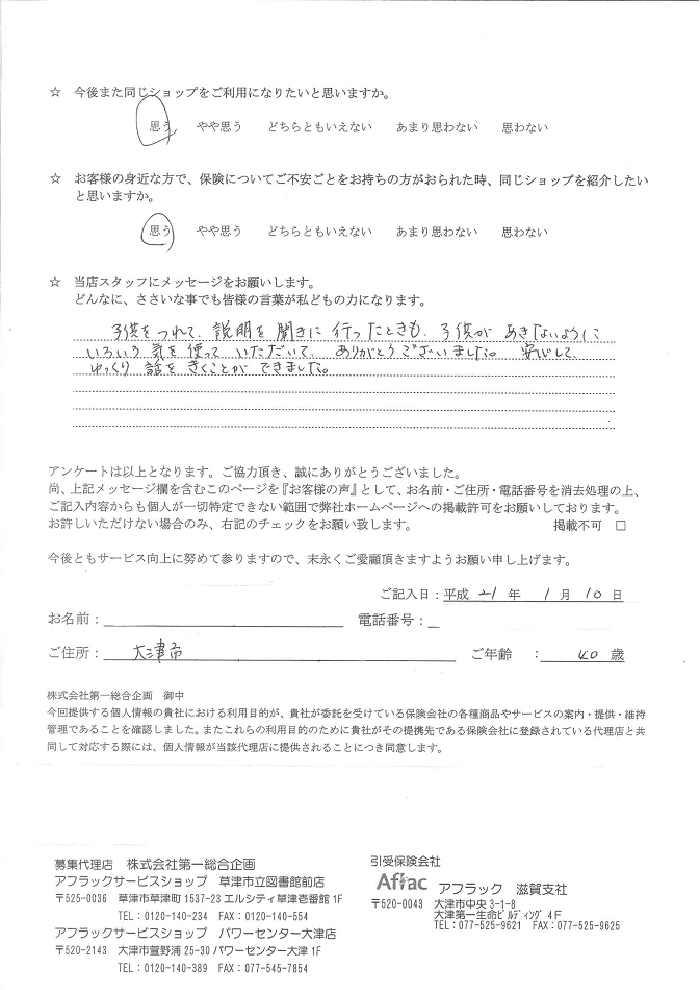 ☆ 今後また同じショップをご利用になりたいと思いますか。
思う やや思う どちらともいえない あまり思わない 思わない
☆ お客様の身近な方で、保険についてご不安ごとをお持ちの方がおられた時、同じショップを紹介したい
と思いますか。
思う やや思う どちらともいえない あまり思わない 思わない
☆ 当店スタッフにメッセージをお願いします。
どんなに、ささいな事でも皆様の言葉が私どもの力になります。
子供をつれて、説明を聞きに行ったときも、子供があきないように
いろいろ気を使っていただいて、ありがとうございました。安心して、
ゆっくり話をきくことができました。
アンケートは以上となります。ご協力頂き、誠にありがとうございました。
尚、上記メッセージ欄を含むこのページを『お客様の声』として、お名前・ご住所・電話番号を消去処理の上、
ご記入内容からも個人が一切特定できない範囲で弊社ホームページへの掲載許可をお願いしております。
お許しいただけない場合のみ、右記のチェックをお願い致します。 掲載不可 □
今後ともサービス向上に努めて参りますので、末永くご愛顧頂きますようお願い申し上げます。
ご記入日：平成 21 年 1 月 10 日
お名前： 電話番号：
ご住所： 大津市 ご年齢 ： 40 歳
株式会社第一総合企画 御中
今回提供する個人情報の貴社における利用目的が、貴社が委託を受けている保険会社の各種商品やサービスの案内・提供・維持
管理であることを確認しました。またこれらの利用目的のために貴社がその提携先である保険会社に登録されている代理店と共
同して対応する際には、個人情報が当該代理店に提供されることにつき同意します。
募集代理店 株式会社第一総合企画
アフラックサービスショップ 草津市立図書館前店
〒525-0036 草津市草津町1537-23 エルシティ草津壱番館1F
TEL：0120-140-234 FAX：0120-140-554
アフラックサービスショップ パワーセンター大津店
〒520-2143 大津市萱野浦25-30 パワーセンター大津1F
TEL：0120-140-389 FAX：077-545-7854
引受保険会社
Aflac アフラック 滋賀支社
〒520-0043 大津市中央3-1-8
大津第一生命ビルディング 4F
TEL：077-525-9621 FAX：077-525-9625